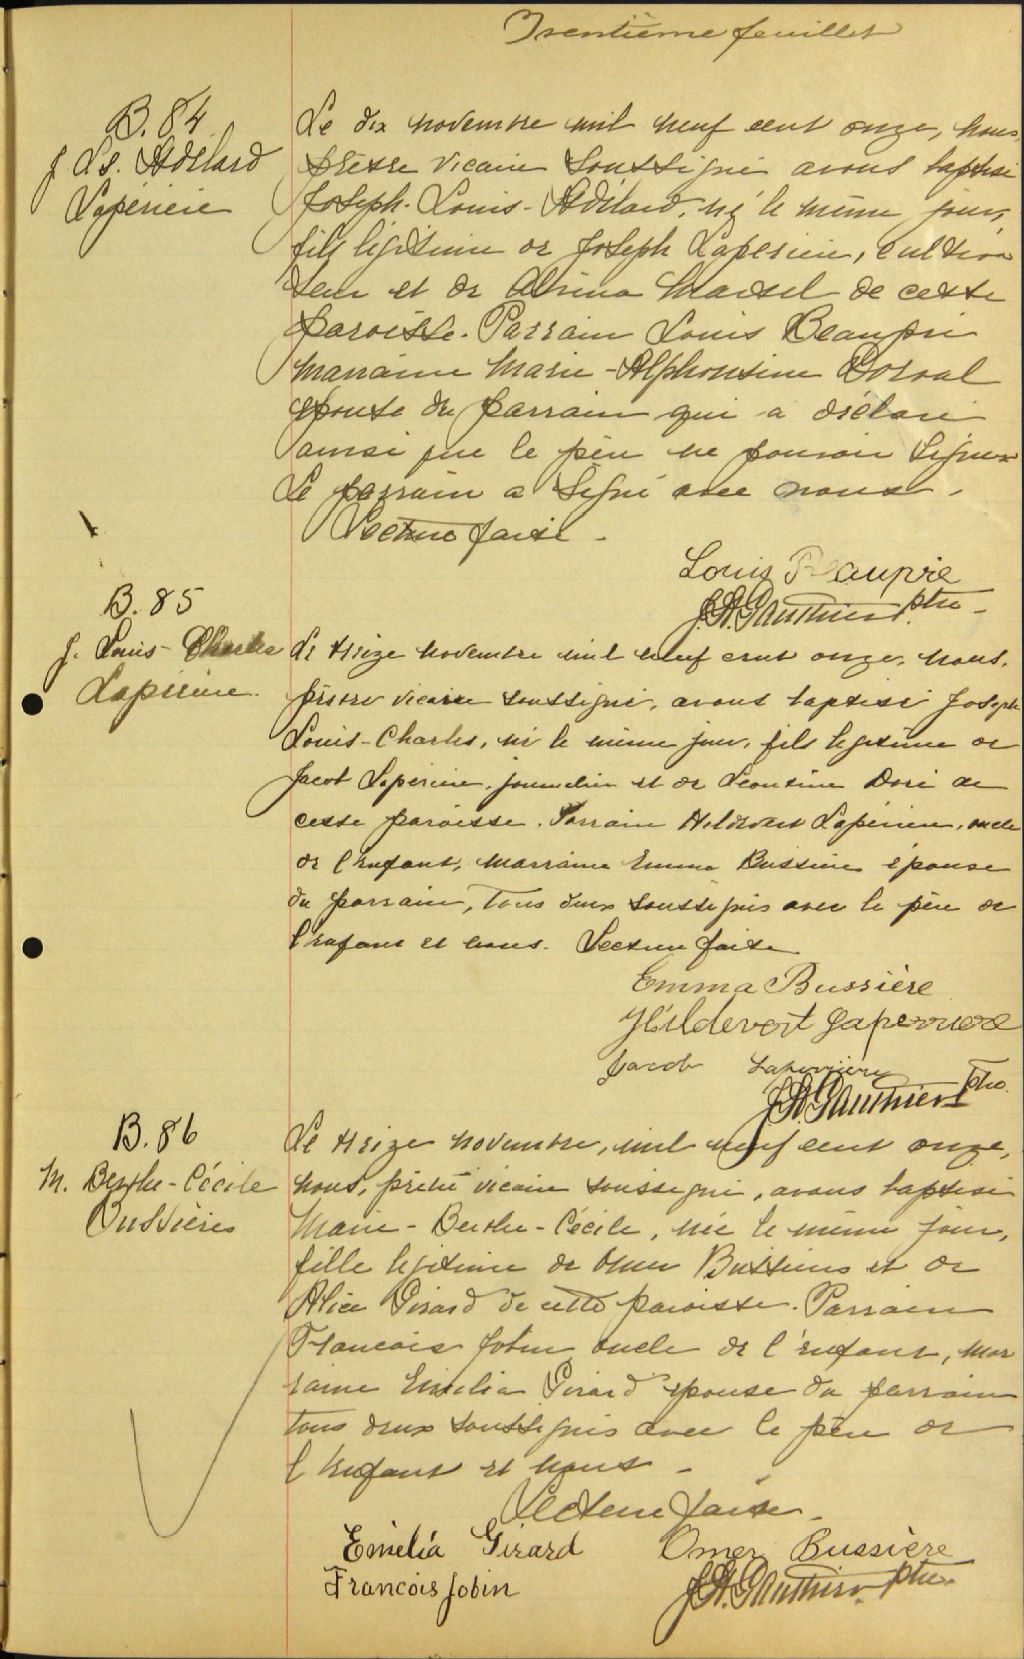 Trentième feuillet
B. 84
J. Ls. Adélard
Lapérière
Le dix novembre mil neuf cent onze, nous,
prêtre vicaire soussigné avons baptisé
Joseph-Louis-Adélard, né le même jour,
fils légitime de Joseph Laperière, cultiva
teur et de Alvina Martel de cette
paroisse. Parrain Louis Beaupré
marraine Marie-Alphonsine Dorval
épouse du parrain qui a déclaré
ainsi que le père ne pouvoir signer
Le parrain a signé avec nous.
Lecture faite.
Louis Beaupré
J.A. Gauthier ptre.
B. 85
J. Louis-Charles
Lapérière.
Le treize novembre mil neuf cent onze, nous,
prêtre vicaire soussigné, avons baptisé Joseph
Louis-Charles, né le même jour, fils légitime de
Jacob Laperière, journalier et de Léontine Doré de
cette paroisse. Parrain Hildevert Lapérière, oncle
de l'enfant, marraine Emma Bussière épouse
du parrain, tous deux soussignés avec le père de
l'enfant et nous. Lecture faite
Emma Bussière
Hildevert Laperriere
Jacob Laperrière
J.A. Gauthier ptre.
B. 86
M. Berthe-Cécile
Bussières
Le treize novembre, mil neuf cent onze,
nous, prêtre vicaire soussigné, avons baptisé
Marie-Berthe-Cécile, née le même jour,
fille légitime de Omer Bussières et de
Alice Girard de cette paroisse. Parrain
Francois Jobin oncle de l'enfant, mar
raine Emelia Girard épouse du parrain
tous deux soussignés avec le père de
l'enfant et nous.
Lecture faite.
Emélia Girard Omer Bussière
Francois Jobin J.A. Gauthier ptre.